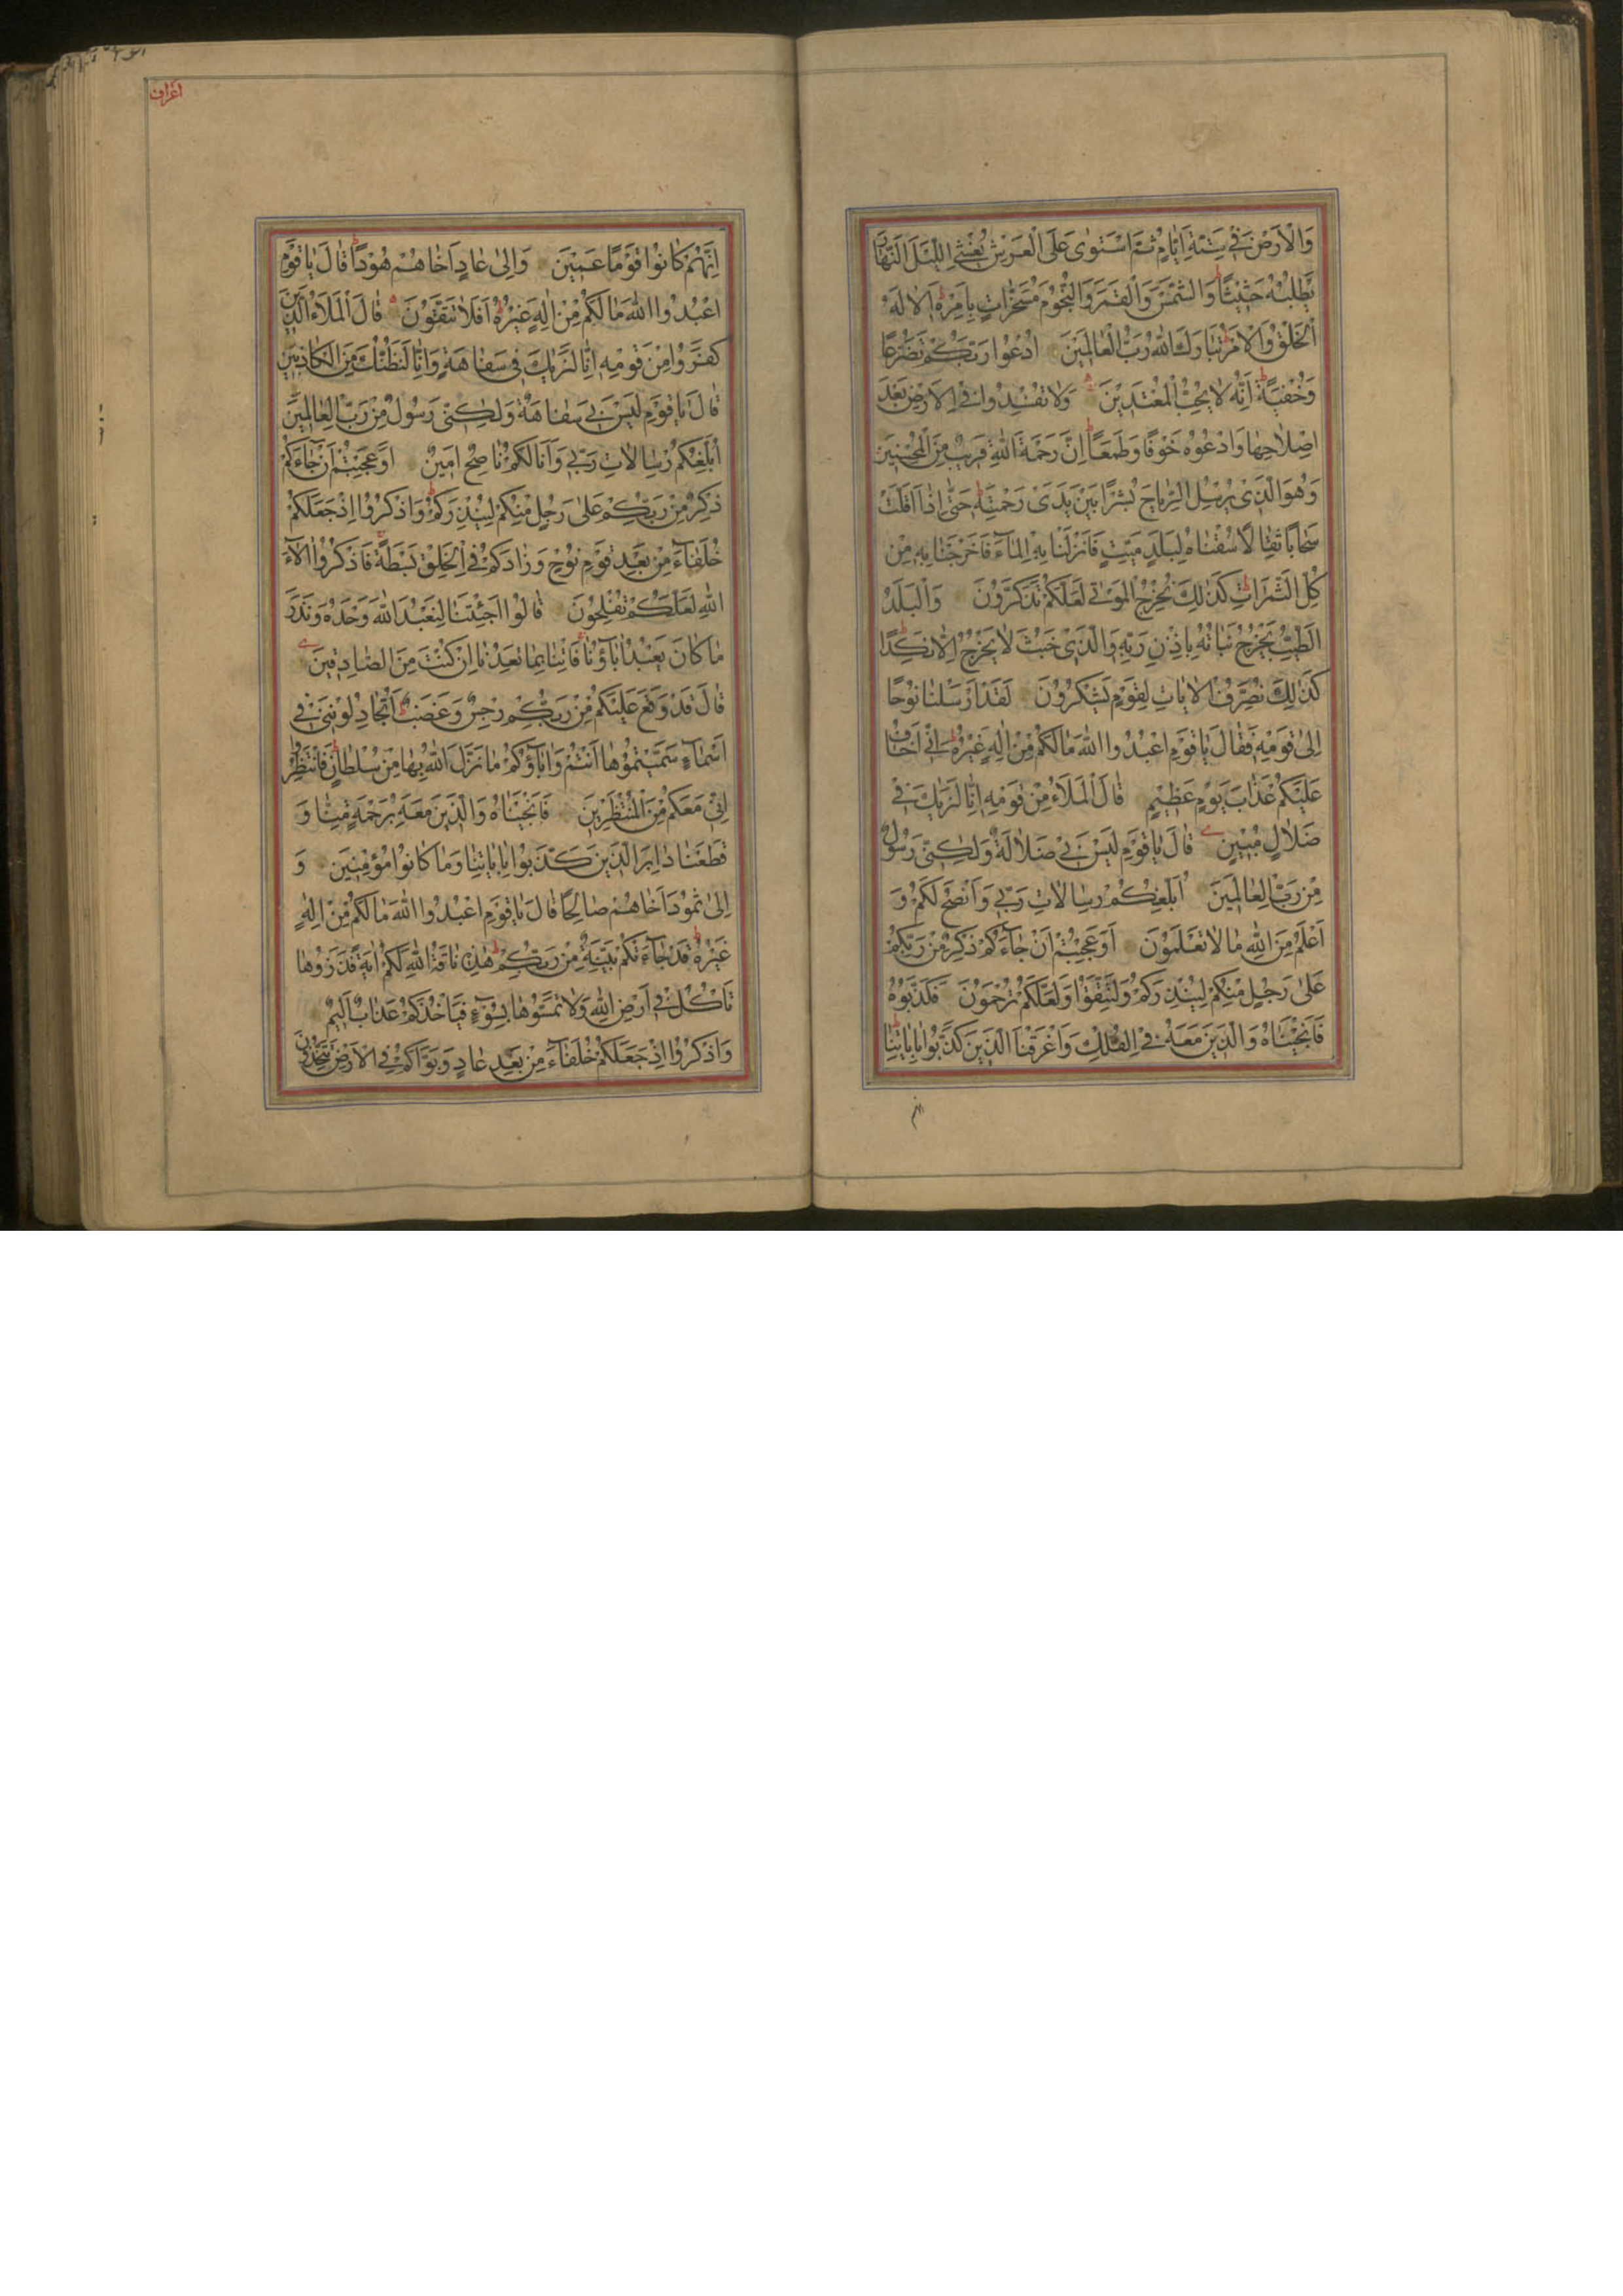 وَالْاَرْضَ فِي سِتَّةِ اَيَّامٍ ثُمَّ اسْتَوٰى عَلَى الْعَرْشِ يُغْشِي اللَّيْلَ النَّهَارَ
يَطْلُبُهُ حَثِيثًا وَالشَّمْسَ وَالْقَمَرَ وَالنُّجُومَ مُسَخَّرَاتٍ بِاَمْرِهِ اَلَا لَهُ
الْخَلْقُ وَالْاَمْرُ تَبَارَكَ اللّٰهُ رَبُّ الْعَالَمِينَ اُدْعُوا رَبَّكُمْ تَضَرُّعًا
وَخُفْيَةً اِنَّهُ لَا يُحِبُّ الْمُعْتَدِينَ وَلَا تُفْسِدُوا فِي الْاَرْضِ بَعْدَ
اِصْلَاحِهَا وَادْعُوهُ خَوْفًا وَطَمَعًا اِنَّ رَحْمَةَ اللّٰهِ قَرِيبٌ مِنَ الْمُحْسِنِينَ
وَهُوَ الَّذِي يُرْسِلُ الرِّيَاحَ بُشْرًا بَيْنَ يَدَيْ رَحْمَتِهِ حَتّٰى اِذَا اَقَلَّتْ
سَحَابًا ثِقَالًا سُقْنَاهُ لِبَلَدٍ مَيِّتٍ فَاَنْزَلْنَا بِهِ الْمَاءَ فَاَخْرَجْنَا بِهِ مِنْ
كُلِّ الثَّمَرَاتِ كَذٰلِكَ نُخْرِجُ الْمَوْتٰى لَعَلَّكُمْ تَذَكَّرُونَ وَالْبَلَدُ
الطَّيِّبُ يَخْرُجُ نَبَاتُهُ بِاِذْنِ رَبِّهِ وَالَّذِي خَبُثَ لَا يَخْرُجُ اِلَّا نَكِدًا
كَذٰلِكَ نُصَرِّفُ الْاٰيَاتِ لِقَوْمٍ يَشْكُرُونَ لَقَدْ اَرْسَلْنَا نُوحًا
اِلٰى قَوْمِهِ فَقَالَ يَا قَوْمِ اعْبُدُوا اللّٰهَ مَا لَكُمْ مِنْ اِلٰهٍ غَيْرُهُ اِنِّي اَخَافُ
عَلَيْكُمْ عَذَابَ يَوْمٍ عَظِيمٍ قَالَ الْمَلَاُ مِنْ قَوْمِهِ اِنَّا لَنَرٰيكَ فِي
ضَلَالٍ مُبِينٍ قَالَ يَا قَوْمِ لَيْسَ بِي ضَلَالَةٌ وَلٰكِنِّي رَسُولٌ
مِنْ رَبِّ الْعَالَمِينَ اُبَلِّغُكُمْ رِسَالَاتِ رَبِّي وَاَنْصَحُ لَكُمْ وَ
اَعْلَمُ مِنَ اللّٰهِ مَا لَا تَعْلَمُونَ اَوَعَجِبْتُمْ اَنْ جَاءَكُمْ ذِكْرٌ مِنْ رَبِّكُمْ
عَلٰى رَجُلٍ مِنْكُمْ لِيُنْذِرَكُمْ وَلِتَتَّقُوا وَلَعَلَّكُمْ تُرْحَمُونَ فَكَذَّبُوهُ
فَاَنْجَيْنَاهُ وَالَّذِينَ مَعَهُ فِي الْفُلْكِ وَاَغْرَقْنَا الَّذِينَ كَذَّبُوا بِاٰيَاتِنَا
انهم
اعراف
اِنَّهُمْ كَانُوا قَوْمًا عَمِينَ وَاِلٰى عَادٍ اَخَاهُمْ هُودًا قَالَ يَا قَوْمِ
اعْبُدُوا اللّٰهَ مَا لَكُمْ مِنْ اِلٰهٍ غَيْرُهُ اَفَلَا تَتَّقُونَ قَالَ الْمَلَاُ الَّذِينَ
كَفَرُوا مِنْ قَوْمِهِ اِنَّا لَنَرٰيكَ فِي سَفَاهَةٍ وَاِنَّا لَنَظُنُّكَ مِنَ الْكَاذِبِينَ
قَالَ يَا قَوْمِ لَيْسَ بِي سَفَاهَةٌ وَلٰكِنِّي رَسُولٌ مِنْ رَبِّ الْعَالَمِينَ
اُبَلِّغُكُمْ رِسَالَاتِ رَبِّي وَاَنَا لَكُمْ نَاصِحٌ اَمِينٌ اَوَعَجِبْتُمْ اَنْ جَاءَكُمْ
ذِكْرٌ مِنْ رَبِّكُمْ عَلٰى رَجُلٍ مِنْكُمْ لِيُنْذِرَكُمْ وَاذْكُرُوا اِذْ جَعَلَكُمْ
خُلَفَاءَ مِنْ بَعْدِ قَوْمِ نُوحٍ وَزَادَكُمْ فِي الْخَلْقِ بَسْطَةً فَاذْكُرُوا اٰلَاءَ
اللّٰهِ لَعَلَّكُمْ تُفْلِحُونَ قَالُوا اَجِئْتَنَا لِنَعْبُدَ اللّٰهَ وَحْدَهُ وَنَذَرَ
مَا كَانَ يَعْبُدُ اٰبَاؤُنَا فَاْتِنَا بِمَا تَعِدُنَا اِنْ كُنْتَ مِنَ الصَّادِقِينَ
قَالَ قَدْ وَقَعَ عَلَيْكُمْ مِنْ رَبِّكُمْ رِجْسٌ وَغَضَبٌ اَتُجَادِلُونَنِي فِي
اَسْمَاءٍ سَمَّيْتُمُوهَا اَنْتُمْ وَاٰبَاؤُكُمْ مَا نَزَّلَ اللّٰهُ بِهَا مِنْ سُلْطَانٍ فَانْتَظِرُوا
اِنِّي مَعَكُمْ مِنَ الْمُنْتَظِرِينَ فَاَنْجَيْنَاهُ وَالَّذِينَ مَعَهُ بِرَحْمَةٍ مِنَّا وَ
قَطَعْنَا دَابِرَ الَّذِينَ كَذَّبُوا بِاٰيَاتِنَا وَمَا كَانُوا مُؤْمِنِينَ وَ
اِلٰى ثَمُودَ اَخَاهُمْ صَالِحًا قَالَ يَا قَوْمِ اعْبُدُوا اللّٰهَ مَا لَكُمْ مِنْ اِلٰهٍ
غَيْرُهُ قَدْ جَاءَتْكُمْ بَيِّنَةٌ مِنْ رَبِّكُمْ هٰذِهِ نَاقَةُ اللّٰهِ لَكُمْ اٰيَةً فَذَرُوهَا
تَاْكُلْ فِي اَرْضِ اللّٰهِ وَلَا تَمَسُّوهَا بِسُوءٍ فَيَاْخُذَكُمْ عَذَابٌ اَلِيمٌ
وَاذْكُرُوا اِذْ جَعَلَكُمْ خُلَفَاءَ مِنْ بَعْدِ عَادٍ وَبَوَّاَكُمْ فِي الْاَرْضِ تَتَّخِذُونَ